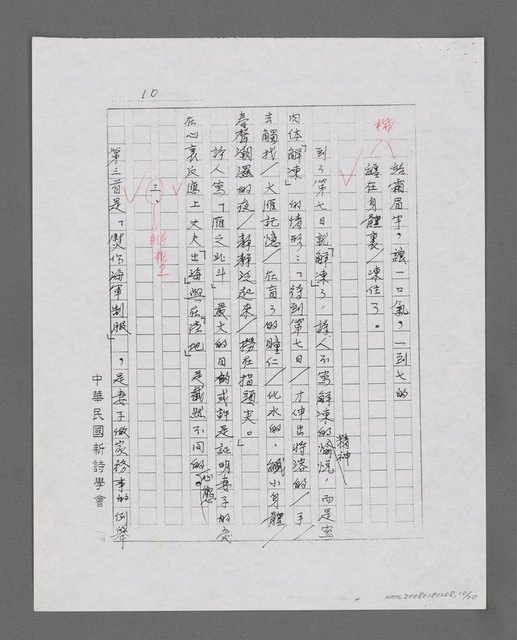 10
結霜眉宇，讓一口氣，一到七的
纏在身體裏／凍住了。
到了第七日就「解凍」了，詩人不寫解凍的愉悅，而是寫
精神
肉体「解凍」的情形：「待到第七日／才伸出將溶的／手
去觸找／大雁記憶／在盲了的瞳仁／化水的，鹹小身體／
春聲潮濕的夜／靜靜泛起來／撈在指頭尖。」
詩人寫「雁之北斗」最大的目的或許是証明妻子的愛
在心裏反應上丈夫出「海」與在「陸地」是截然不同的心態。
三、
第三首是「熨你海軍制服」，是妻子做家務事的例舉
中華民國新詩學會
NMTL20080181208.10/30